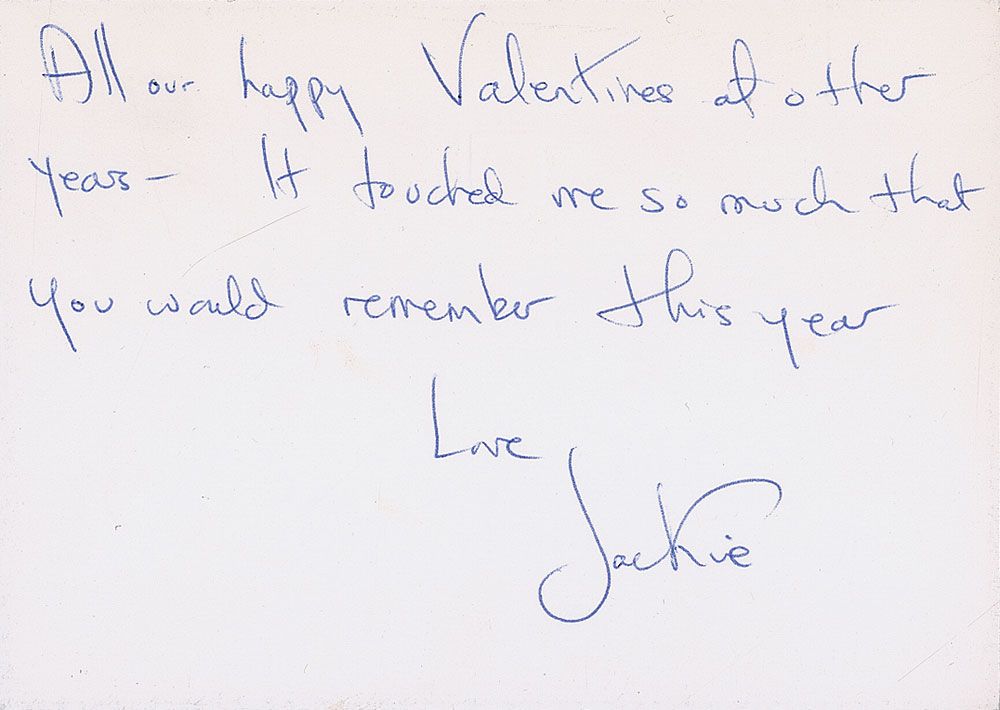 All our happy Valentines of other
years – It touched me so much that
you would remember this year
Love
Jackie